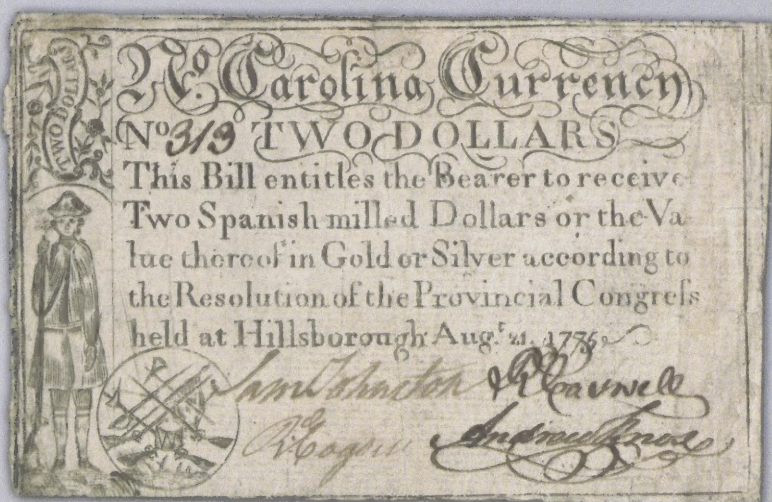 TWO DOLLARS
No. Carolina Currency
No 313 TWO DOLLARS
This Bill entitles the Bearer to receive
Two Spanish milled Dollars or the Va
lue thereof in Gold or Silver according to
the Resolution of the Provincial Congreſs
held at Hillsborough Augt. 21. 1775
Sam Johnston R Caswell
R Cogdell Andrew Knox